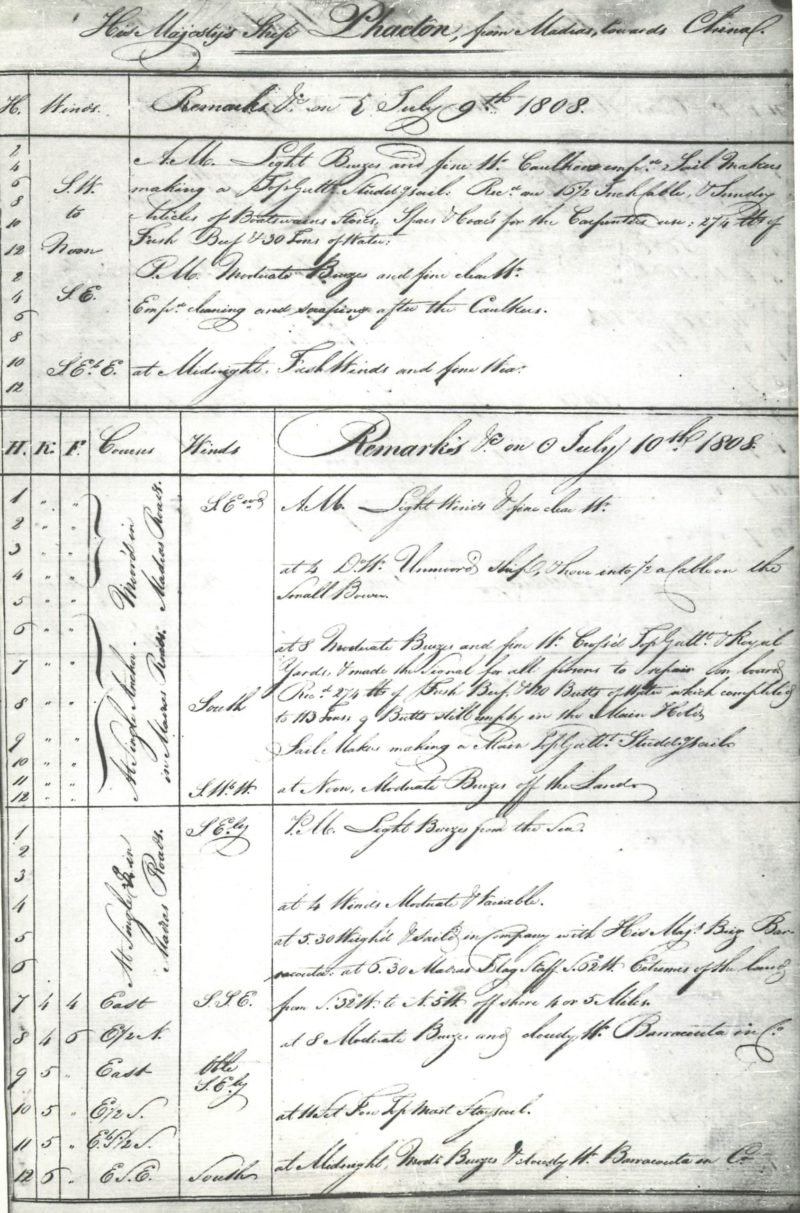 His Majesty's Ship Phaeton, from Madras, towards China.
H. Winds. Remarks &c on ♄ July 9th 1808.
2
4
6
8
10
12
2
4
6
8
10
12
S.W
to
Noon
S.E.
S.E b E.
A.M. Light Breezes and fine Wr. Caulkers empd. Sail Makers
making a TopGallt. Studdgsail. Recd. an 15½ Inch Cable, & Sundry
Articles of Boatswains Stores, Spars & Coals for the Carpenters use; 274 lbs of
Fresh Beef & 30 Tons of Water:
P.M. Moderate Breezes and fine clear Wr.
Empd. cleaning and scraping after the Caulkers.
at Midnight, Fresh Winds and fine Wear
H. K. F. Courses Winds Remarks &c on ☉ July 10th 1808.
1 " "
2 " "
3 " "
4 " "
5 " "
6 " "
7 " "
8 " "
9 " "
10 " "
11 " "
12 " "
Moor'd in
Madras Roads.
At Single Anchor
in Madras Roads.
S.Ewd
South
S.W b W.
A.M. Light Winds & fine clear Wr.
at 4 Do. Wr. Unmoor'd Ship, & hove into ½ a Cable on the
Small Bower.
at 8 Moderate Breezes and fine Wr. Cross'd TopGallt. & Royal
Yards, & made the Signal for all persons to repair on board
Recd. 274 lbs of Fresh Beef, & 110 Butts of Water which completed
to 113 Tons 9 Butts still empty in the Main Hold
Sail Makers making a Main TopGallt. Studdgsail
at Noon, Moderate Breezes off the Land
1
2
3
4
5
6
At Single Ar. in
Madras Roads.
S.Ely
P.M. Light Breezes from the Sea.
at 4 Winds Moderate & Variable.
at 5.30 Weigh'd & sail'd in Company with His Majs. Brig Bar-
racouta: at 6.30 Madras Flag Staff S.62 W. Extremes of the land
7 4 4 East S.S.E. from S.32 W. to N.5 W. off shore 4 or 5 Miles.
8 4 6 E½N. at 8 Moderate Breezes and cloudy Wr. Barracouta in Co.
9 5 " East Vble
S.Ely
10 5 " E½S. at 10 Set Fore Top Mast Staysail.
11 5 " EbS½S.
12 6 " E.S.E. South at Midnight, Modte Breezes & cloudy Wr. Barracouta in Co.